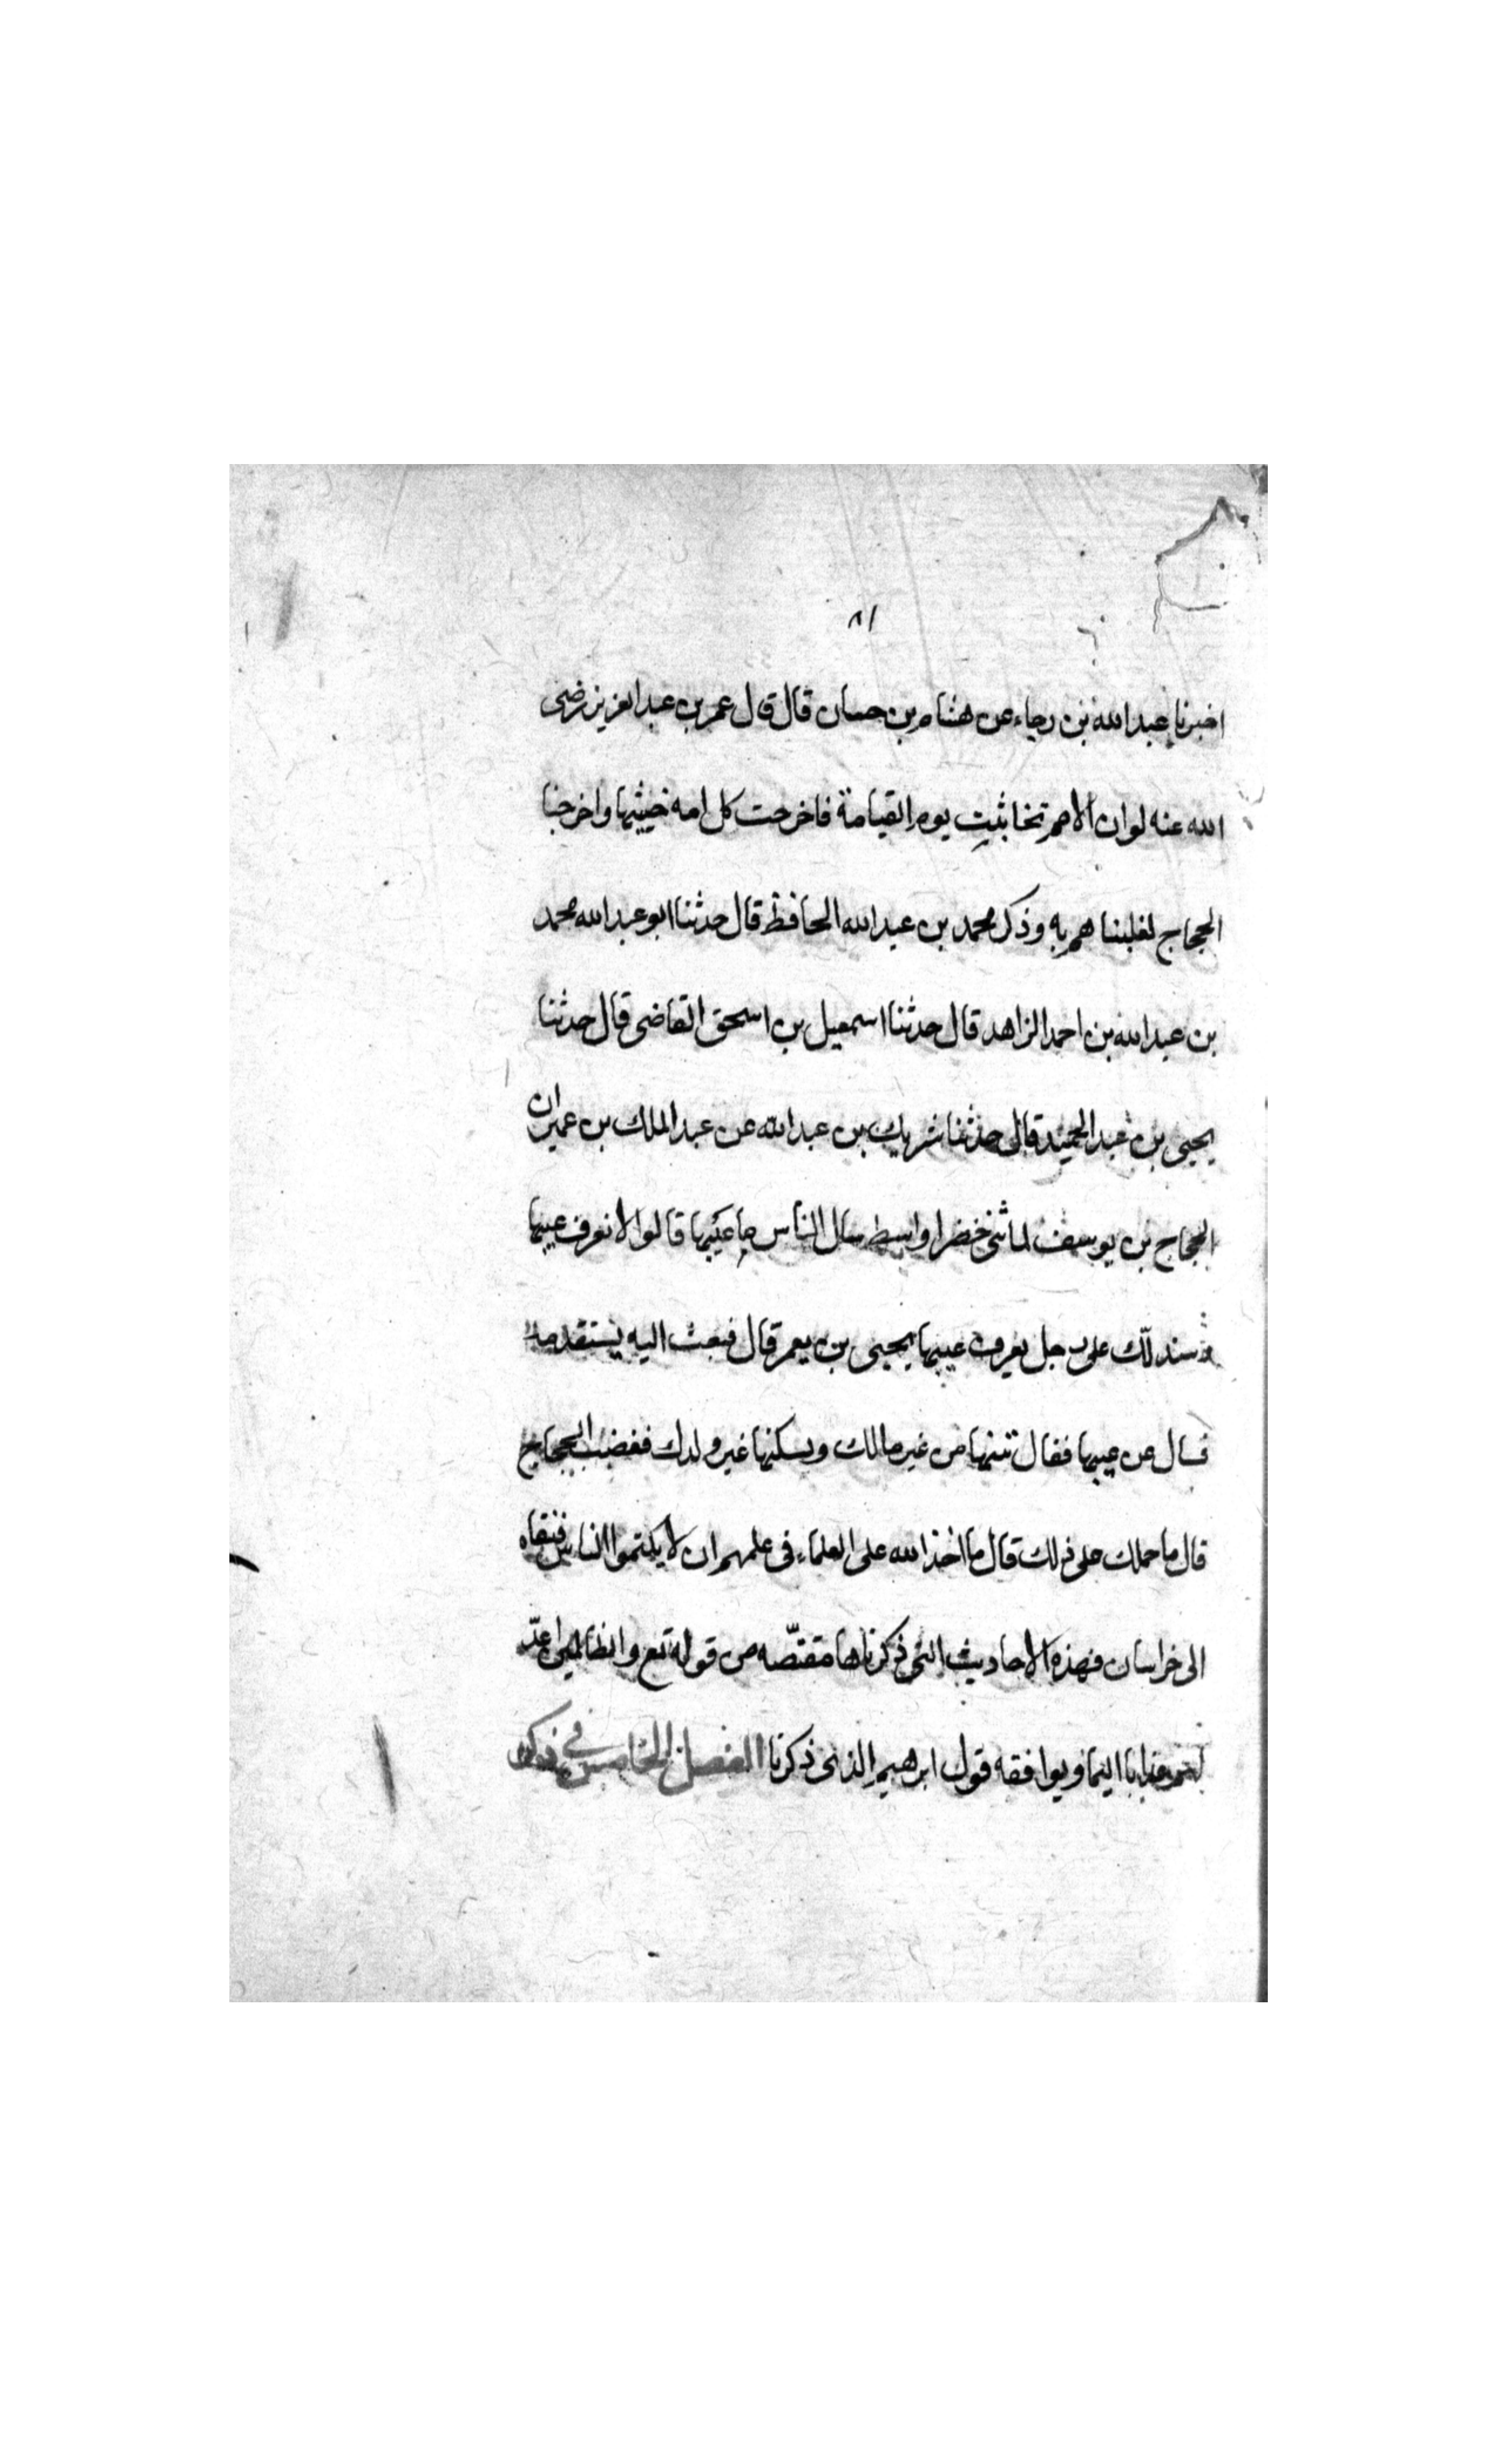 ٨١
اخبرنا عبد الله بن رجاء عن هشام بن حسان قال قال عمر بن عبد العزيز رضى
الله عنه لو ان الامم تخابثت يوم القيامة فاخرجت كل امه خبيثها واخرجنا
الحجاج لغلبناهم به وذكر محمد بن عبد الله الحافظ قال حدثنا ابو عبد الله محمد
بن عبد الله بن احمد الزاهد قال حدثنا اسمعيل بن اسحق القاضى قال حدثنا
يحيى بن عبد الحميد قال حدثنا شريك بن عبد الله عن عبد الملك بن عمير ان
الحجاج بن يوسف لما بنى خضرا واسط سال الناس ما عيبها قالوا لا نعرف عيبها
وسندلك على رجل يعرف عيبها يحيى بن يعمر قال فبعث اليه يستقدمه
فسال عن عيبها فقال تبنيها من غير مالك ويسكنها غير ولدك فغضب الحجاج
قال ما حملك على ذلك قال ما اخذ الله على العلماء فى علمهم ان لا يكتموا الناس فنفاه
الى خراسان فهذه الاحاديث التى ذكرناها مقتصه من قوله تع والظالمين اعد
لهم عذابا اليما ويوافقه قول ابرهيم الذى ذكرنا الفصل الخامس في ذكر